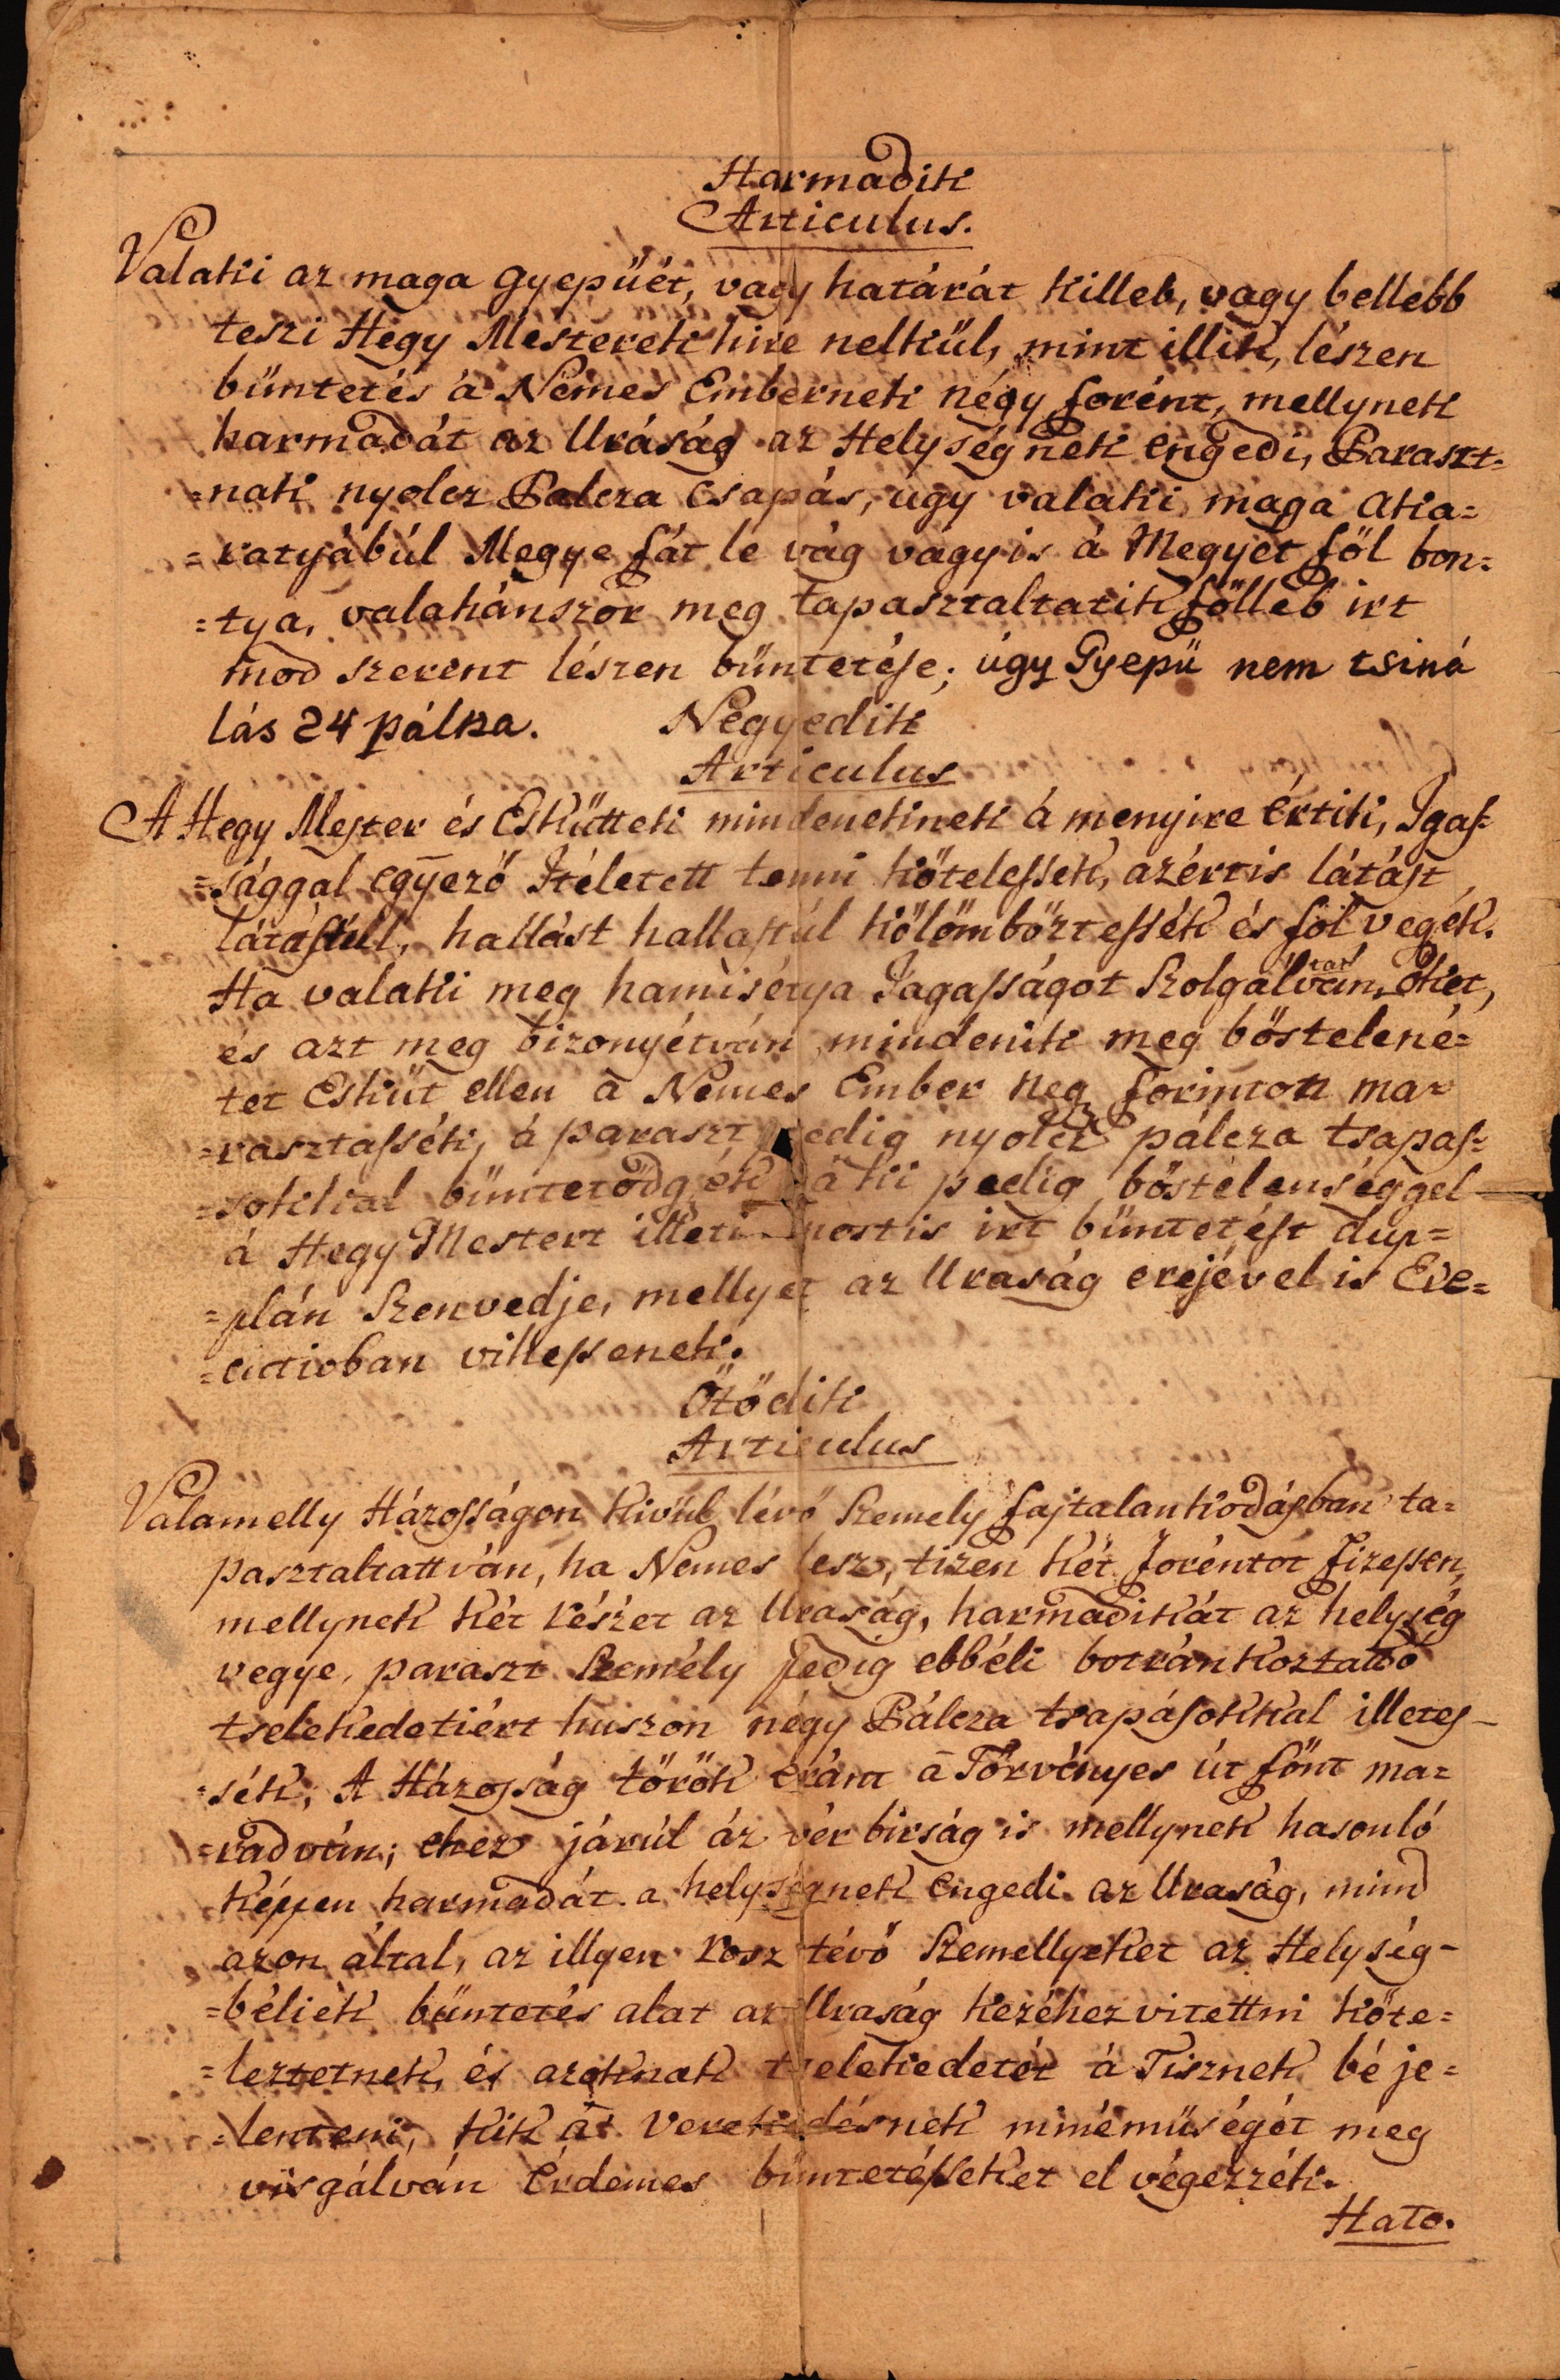 Harmadik
Articulus.
Valaki az maga gyepűét, vagy határát killeb, vagy bellebb
teszi Hegy Mesterek hire nelkűl, mint illik, lészen
bűntetés á Nemes Embernek négy forént, mellynek
harmadát az Uráság az Helységnek engedi, Paraszt-
=nak nyolcz Palcza csapás, úgy valaki maga aka=
=ratyábúl Megye fát le vág vagy is á Megyét föl bon=
=tya, valahánszor meg tapasztaltatik fölleb irt
mod szerent lészen bűntetése; úgy Gyepű nem tsiná
lás 24 pálza.
Negyedik
Articulus
A Hegy Mester és Eskűttek mindenekinek á menyire értik, Igas=
=sággal egyező Itéletett tenni kötelessek, azértis látást
látástúl, hallást hallastúl kölömböztessék és föl vegék.
Ha valaki meg hamisétya Iagasságot Szolgálván őket,
tat
és azt meg bizonyétván mindenik meg böstelené=
tet Eskűt ellen á Nemes Ember neg forinton ma=
=rasztassék, á paraszt pedig nyolcz pálcza tsapas=
=sokkal bűntetődgyék á ki pedig böstelenséggel
á Hegy Mestert illeti mostis irt bűntetést dup=
=plán Szenvedje, mellyet az Uraság erejével is Exe=
=cutioban vitessenek.
Ötödik
Articulus
Valamelly Házosságon kivűl lévő Szemely fajtalankodásban ta=
pasztaltattván, ha Nemes lesz, tizen két foréntot fizessen,
mellynek két részét az Uraság, harmadikát az helység
vegye, paraszt Személy pedig ebbéli botránkoztató
tselekedetiért huszon négy Pálcza tsapásokkal illetes-
=sék, A Házosság török eránt á Törvényes út fönt ma=
=radván; ehez járúl áz vér birság is mellynek hasonló
képpen harmadát a helységnek engedi az Uraság, mind
azon által, az illyen rosz tévő Szemellyeket az Helység-
=béliek bűntetés alat az Uraság kezéhez vitettni köte=
=leztetnek, és azoknak tselekedetét á Tisznek bé je=
=lenteni, kik át Verekedésnek minéműségét meg
visgálván érdemes bűntetésseket el végezzék.
Hato.